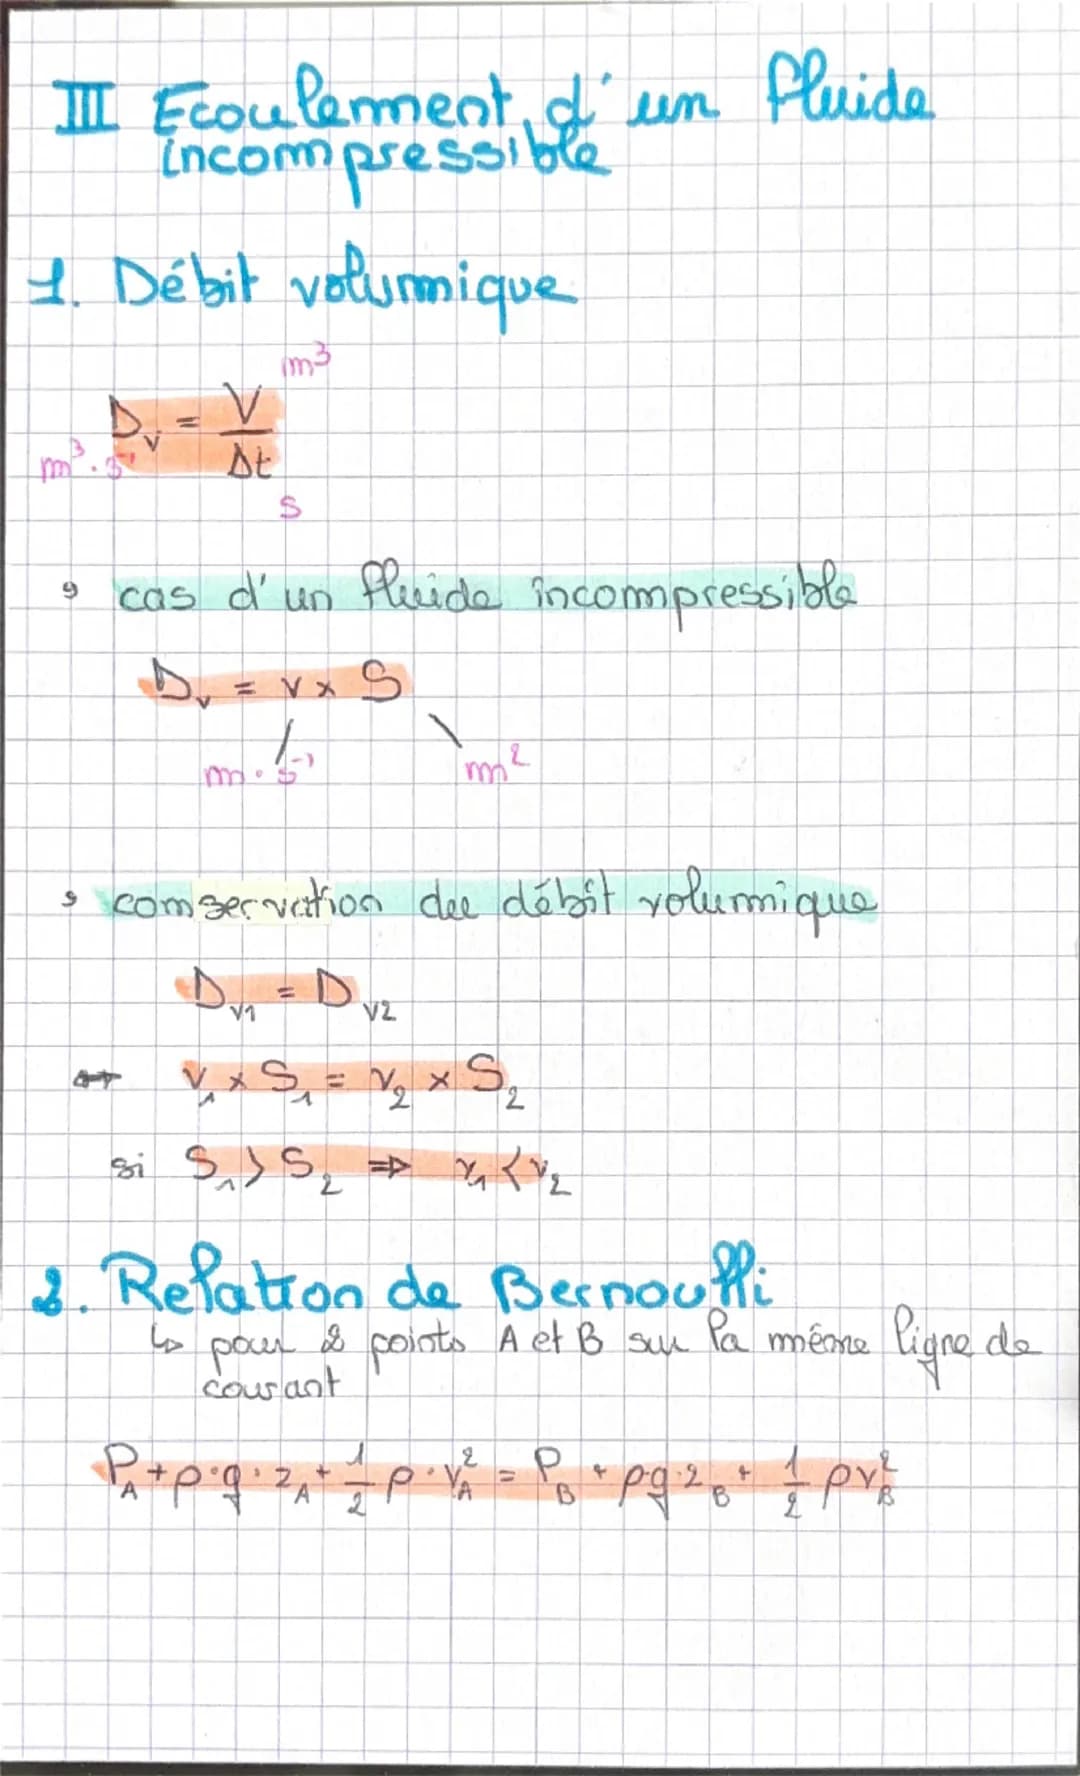 III Ecoulement d'un fluide
incompressible
1. Débit volumique
m³
D_v = V
m³.s⁻¹ Δt
s
cas d'un fluide incompressible
D_v = v × S
m.s⁻¹ m²
conservation du débit volumique
D_v1 = D_v2
↔ v₁ × S₁ = v₂ × S₂
si S₁ > S₂ ⇒ v₁ < v₂
2. Relation de Bernoulli
↳ pour 2 points A et B sur la même ligne de
courant
P_A + ρ·g·z_A + 1/2 ρ·v_A² = P_B + ρg·z_B + 1/2 ρv_B²